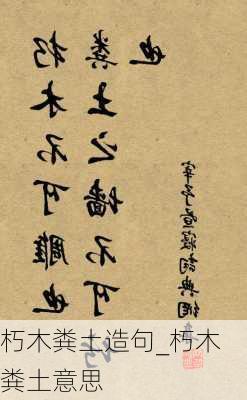 朽木不可雕也
糞土之墙不可
也
宰予
朽木粪土造句_朽木
粪土意思